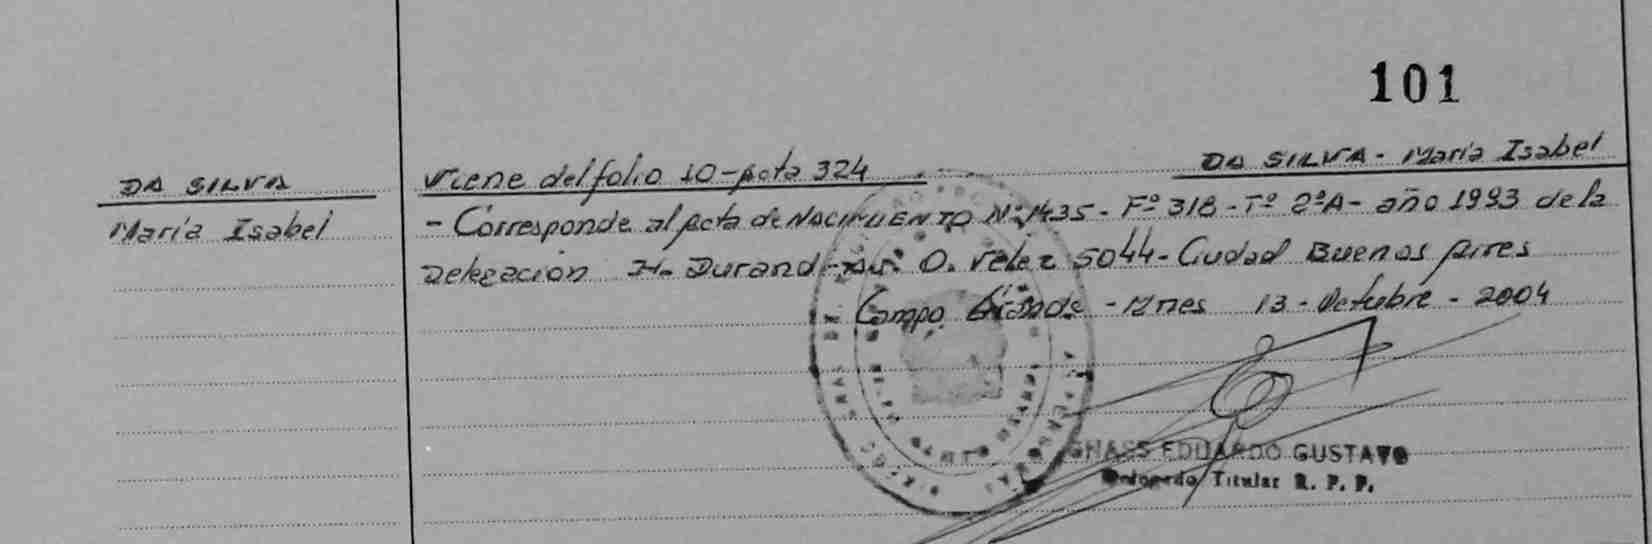 101
DA SILVA
María Isabel
Viene del folio 10-Acta 324
DA SILVA - María Isabel
- Corresponde al Acta de NACIMIENTO Nº 1435 - Fº 318 - Tº 2ºA - año 1993 de la
Delegación H. Durand - Av. D. Velez 5044 - Ciudad Buenos Aires
Campo Grande - Mnes 13 - Octubre - 2004
EDUARDO GUSTAVO
Delegado Titular R. P. P.